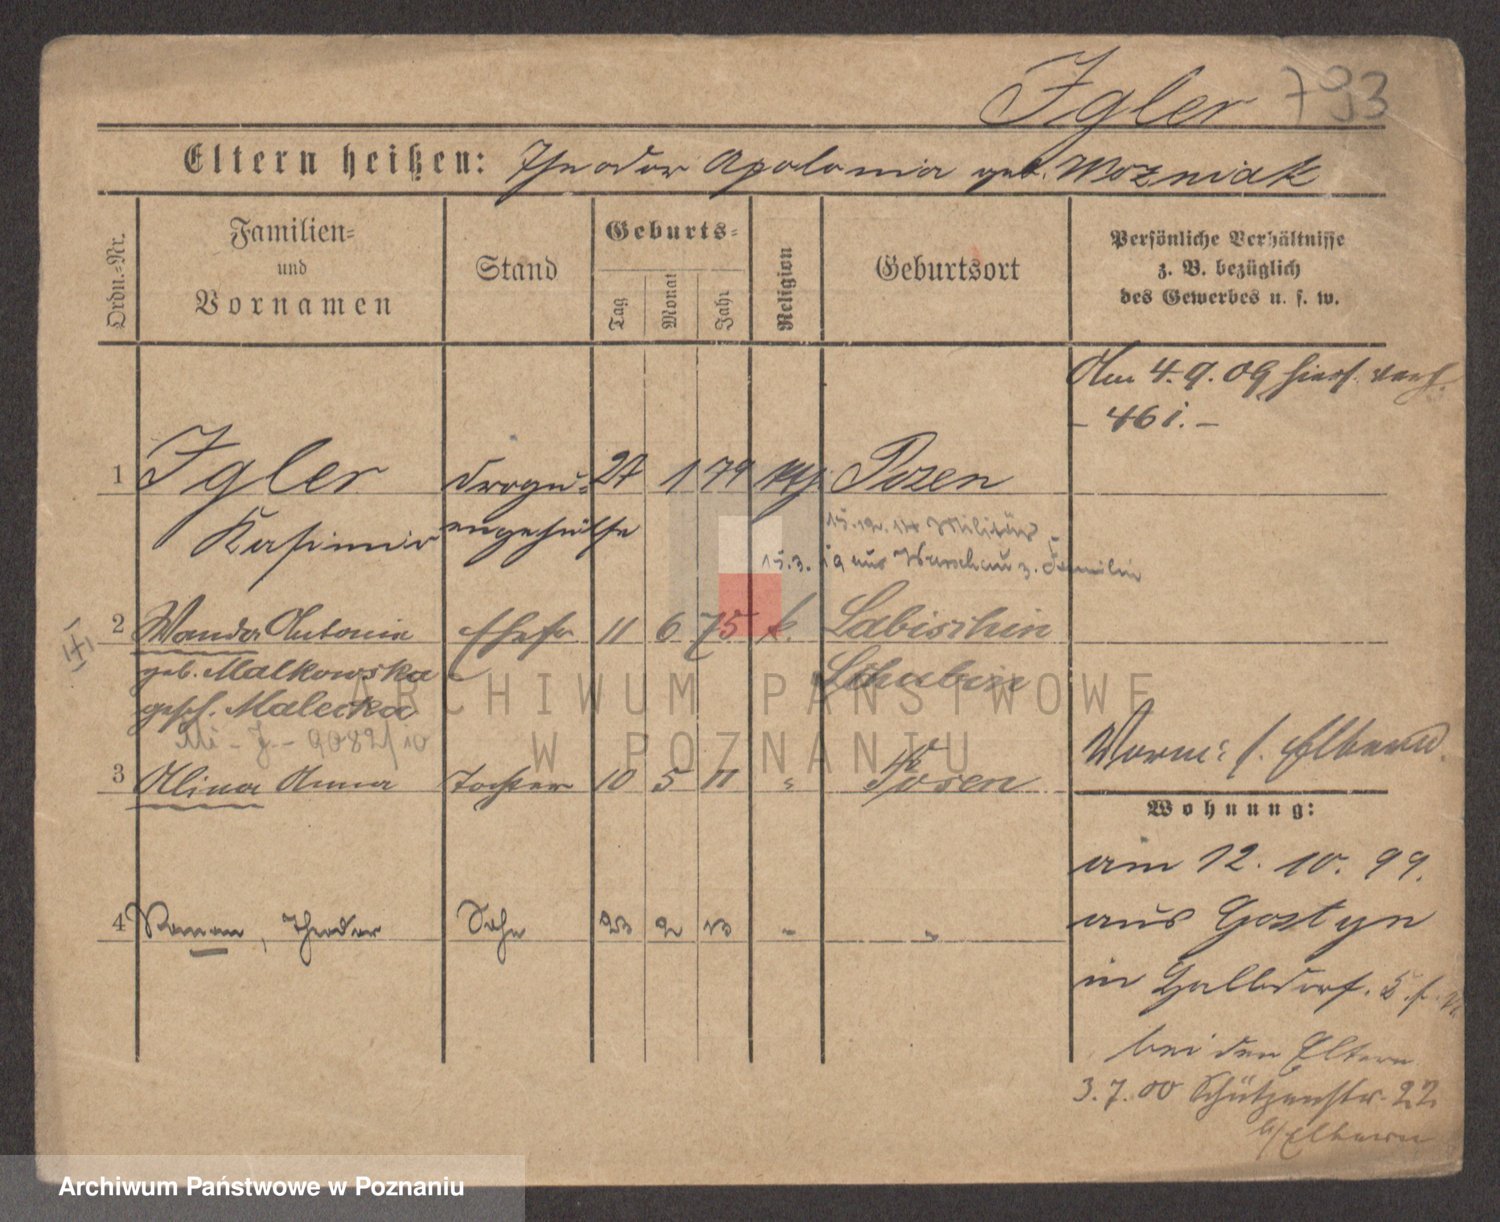 Igler 793
Eltern heißen: Theodor Apolonia geb. Wozniak
Ordn.=Nr.
Familien=
und
Vornamen
Stand
Geburts=
Tag
Monat
Jahr
Religion
Geburtsort
Persönliche Verhältnisse
z. B. bezüglich
des Gewerbes u. s. w.
Am 4.9.09 hies. verh.
- 461. -
1 Igler Drogu= 27 1 79 Posen
Kasimir engehülfe
15.12.14 Militär
15.3.19 aus Warschau z. Familie
2 Wanda Antonie Ehefr 11 6 75 k. Labischin
geb. Malkowska Schubin
gesch. Malecka
9082/10
Worm: s. Eltern
3 Alina Anna Tochter 10 5 11 " Posen
Wohnung:
am 12. 10. 99.
aus Gostyn
4 Roman, Theodor Sohn 23 2 13 " "
in Halbdorf.
bei den Eltern
3.7.00 Schützenstr. 22
b/Eltern
ARCHIWUM PAŃSTWOWE
W POZNANIU
Archiwum Państwowe w Poznaniu